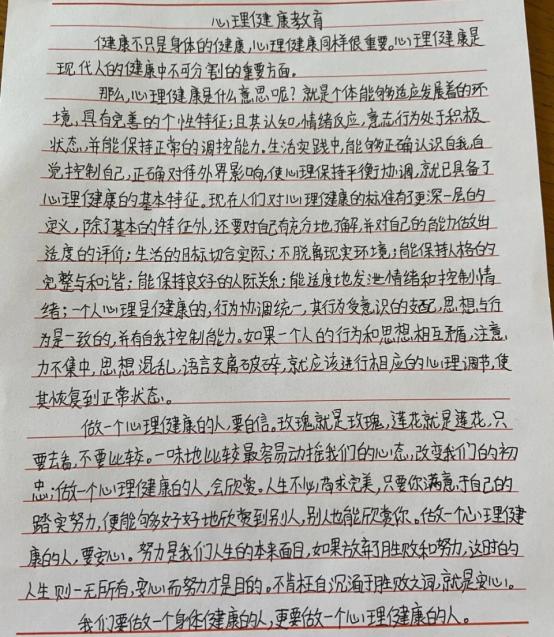 心理健康教育
健康不只是身体的健康,心理健康同样很重要。心理健康是
现代人的健康中不可分割的重要方面。
那么,心理健康是什么意思呢?就是个体能够适应发展着的环
境,具有完善的个性特征;且其认知,情绪反应,意志行为处于积极
状态,并能保持正常的调控能力。生活实践中,能够正确认识自我,自
觉控制自己,正确对待外界影响,使心理保持平衡协调,就已具备了
心理健康的基本特征。现在人们对心理健康的标准有了更深一层的
定义,除了基本的特征外,还要对自己有充分地了解,并对自己的能力做出
适度的评价;生活的目标切合实际;不脱离现实环境;能保持人格的
完整与和谐;能保持良好的人际关系;能适度地发泄情绪和控制情
绪;一个人心理是健康的,行为协调统一,其行为受意识的支配,思想与行
为是一致的,并有自我控制能力。如果一个人的行为和思想相互矛盾,注意
力不集中,思想混乱,语言支离破碎,就应该进行相应的心理调节,使
其恢复到正常状态。
做一个心理健康的人,要自信。玫瑰就是玫瑰,莲花就是莲花,只
要去看,不要比较。一味地比较最容易动摇我们的心态,改变我们的初
忠;做一个心理健康的人,会欣赏。人生不必苛求完美,只要你满意于自己的
踏实努力,便能够好好地欣赏到别人,别人也能欣赏你。做一个心理健
康的人,要安心。努力是我们人生的本来面目,如果放弃了胜败和努力,这时的
人生则一无所有,安心而努力才是目的。不肯枉自沉湎于胜败之词,就是安心。
我们要做一个身体健康的人,更要做一个心理健康的人。